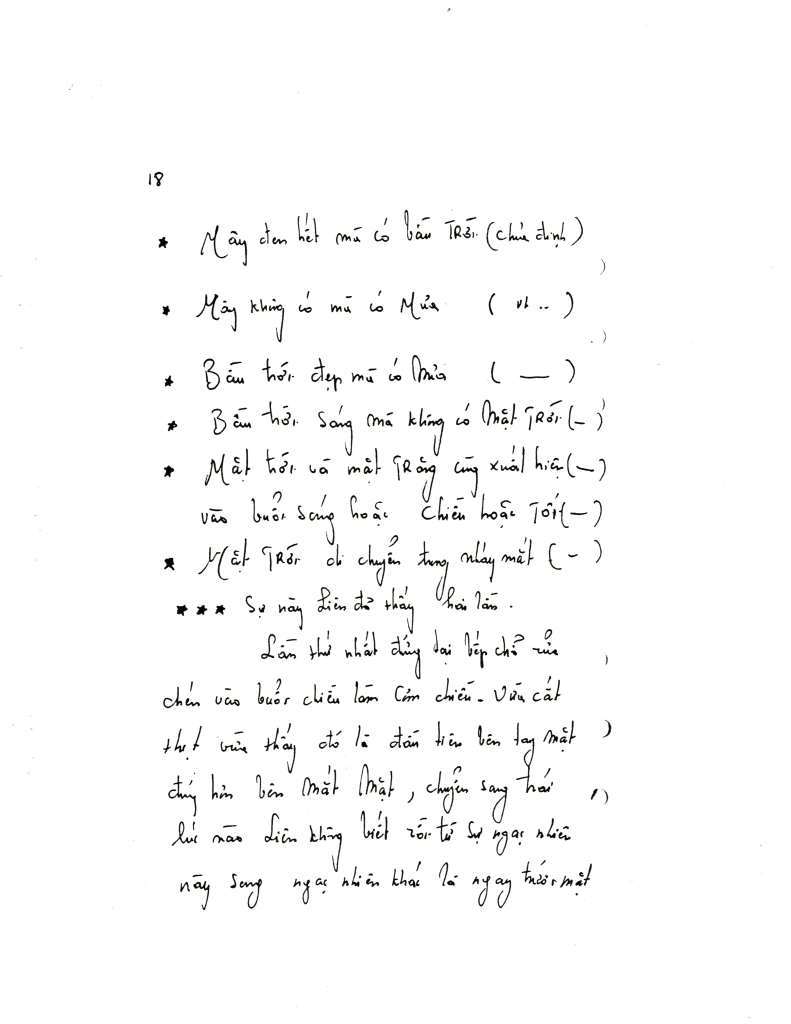 18
★ Mây đen hết mà có bầu TRời (chưa định)
★ Mây không có mà có Mưa ( nt .. )
★ Bầu trời đẹp mà có Mưa ( — )
★ Bầu trời sáng mà không có Mặt TRời (–)
★ Mặt trời và mặt TRăng cùng xuất hiện (—)
vào buổi sáng hoặc chiều hoặc Tối (—)
★ Mặt TRời di chuyển trong nháy mắt ( – )
★ ★ ★ Sự này Liên đã thấy hai lần.
Lần thứ nhất đứng tại bếp chỗ rửa
chén vào buổi chiều làm cơm chiều. Vừa cắt
thịt vừa thấy đó là đầu tiên bên tay mặt
đúng hơn bên Mắt Mặt, chuyển sang trái
lúc nào Liên không biết rồi từ sự ngạc nhiên
này sang ngạc nhiên khác là ngay trước mặt